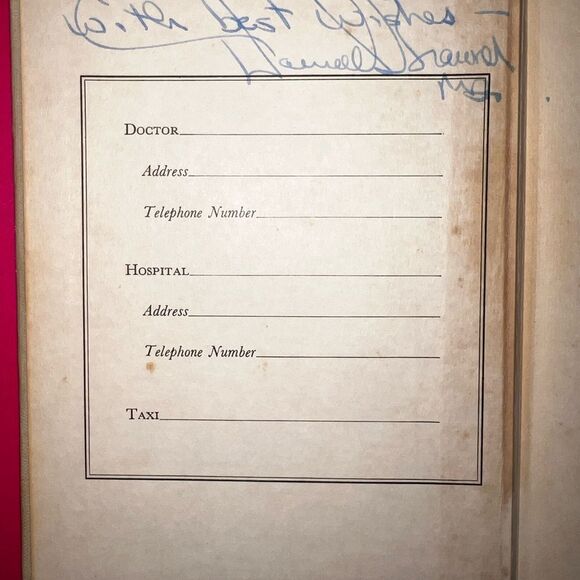 With best wishes —
M.D.
DOCTOR
Address
Telephone Number
HOSPITAL
Address
Telephone Number
TAXI